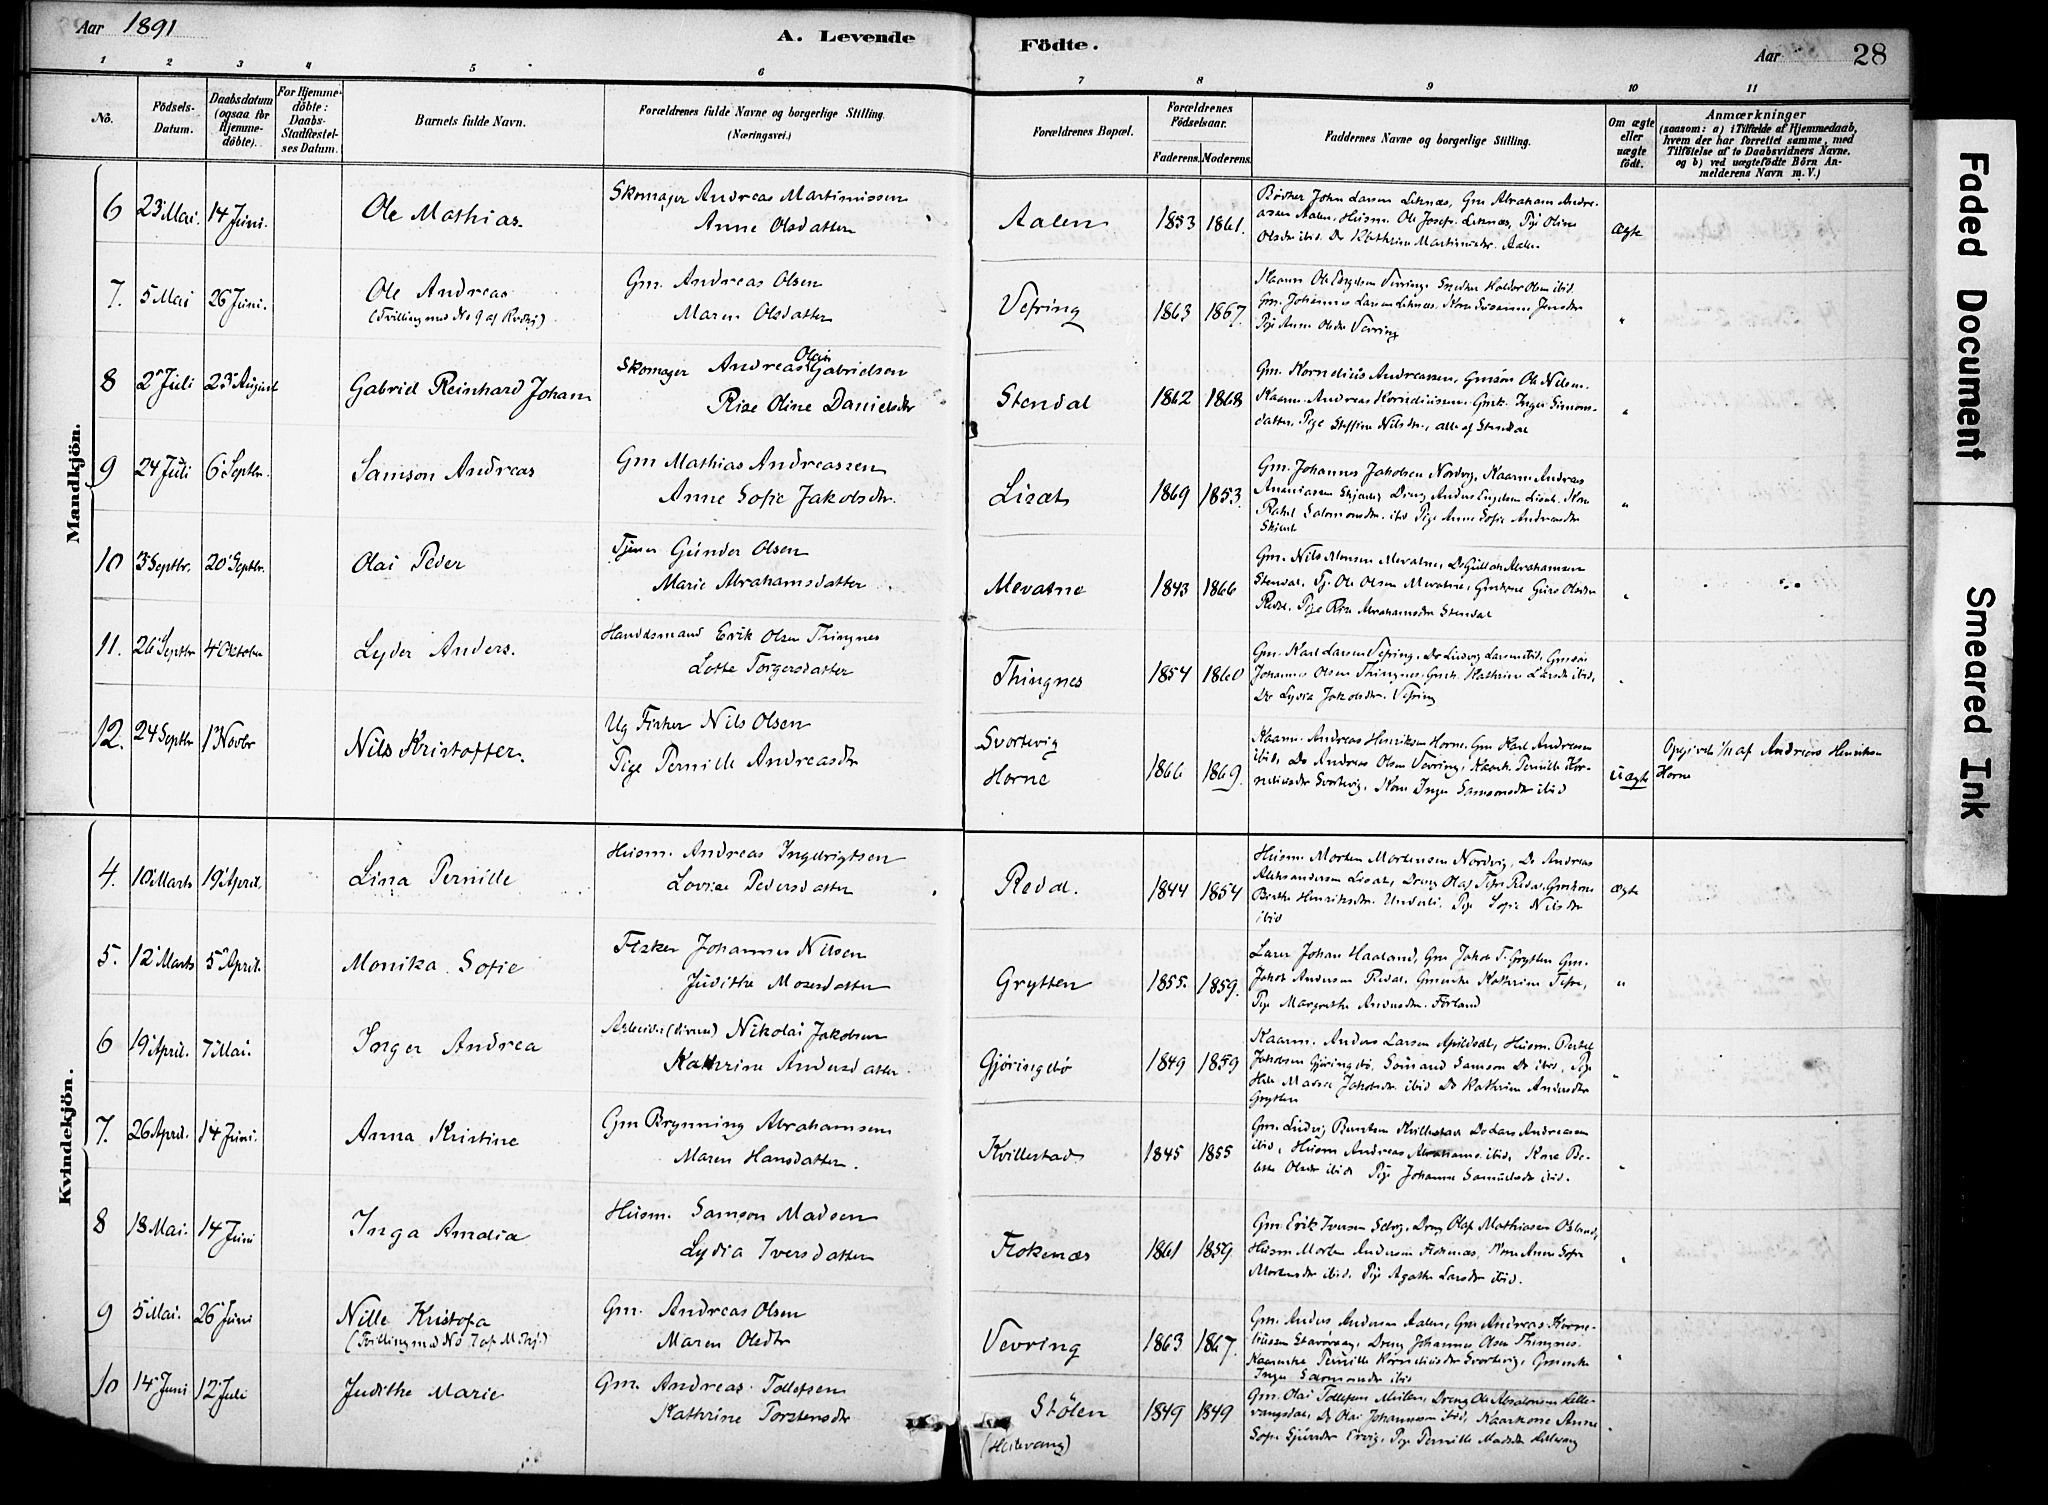 Aar 1891
A. Levende
Födte.
Aar
28
1 2 3 4 5 6 7 8 9 10 11
No.
Födsels-Datum.
Daabsdatum (ogsaa for Hjemme-döbte).
For Hjemme-döbte: Daabs-Stadfæstel-ses Datum.
Barnets fulde Navn.
Forældrenes fulde Navne og borgerlige Stilling. (Næringsvei.)
Forældrenes Bopæl.
Forældrenes Födselsaar.
Faderens. Moderens.
Faddernes Navne og borgerlige Stilling.
Om ægte eller uægte födt.
Anmærkninger
(saasom: a) i Tilfælde af Hjemmedaab,
hvem der har forrettet samme, med
Tilföielse af to Daabsvidners Navne,
og b) ved uægtefödte Börn An-
melderens Navn m. V.)
Mandkjön.
6 23 Mai. 14 Juni. Ole Mathias. Skomager Andreas Martinussen
Anne Olsdatter Aalen 1853 1861. ægte
Bödker John Larsen Leknæs, Gm Abraham Andre-
assen Aalen, Husm. Ole Josef. Leknæs, Pige Oline
Olsdr ibid. Do Kathrine Martinusdr. Aalen
7. 5 Mai 26 Juni. Ole Andreas Gm. Andreas Olsen
(Tvilling med No 9 af Kvdkj) Maren Olsdatter Vefring 1863 1867. "
Gm. Johannes Larsen Leknæs. Kone Susanne Jensdr
Pige Anne Olsdr Vevring
8 2 Juli 23 August Gabriel Reinhard Johan Skomager Andreas Olai Gabrielsen
Rise Oline Danielsdr Stendal 1862 1868 "
Gm. Kornelius Andreassen, Gmsön Ole Nilsen.
Kaarm. Andreas Korneliussen. Gmk. Inger Simons-
datter, Pige Steffine Nilsdr., alle af Stendal
9 24 Juli 6 Septbr. Samson Andreas Gm Mathias Andreassen
Anne Sofie Jakobsdr. Lisæt 1869 1853. "
Gm. Johannes Jakobsen Nordvig, Kaarm Andreas
Ananiassen Dreng Anders Lisæt. Kone
Rakel Salomonsdr. ibid Pige Anne Sofie Andreasdr
10 3 Septbr. 20 Septbr. Olai Peder Tjener Gunder Olsen
Marie Abrahamsdatter Mevatne 1843 1866 "
Gm. Nils Monsen Mevatne, Do Gullak Abrahamsen
Stendal, Tj. Ole Olsen Mevatne, Gmkone Guro Olsdr
Redal, Pige Rise Abrahamsdr Stendal
11. 26 Septbr 4 Oktober Lyder Anders. Handelsmand Erik Olsen Thingnes
Lotte Torgersdatter Thingnes 1854 1860
Gm. Karl Larsen Vefring, Do Ludvig Larsen ibid, Gmsön
Johannes Olsen Thingnes. Gmk. Kathrine Larsdr ibid,
Do Lydia Jakobsdr. Vefring
12. 24 Septbr 1 Novbr Nils Kristoffer. Ug Fisker Nils Olsen
Pige Pernille Andreasdr Svortevig
Horne 1866 1869. uægte
Kaarm. Andreas Henriksen Horne, Gm Karl Andreassen
ibid, Do Andreas Olsen Vevring, Kaark. Pernille Kor-
neliusdr Svortevig, Kone Inger Samsonsdr ibid
Opgivet 1/11 af Andreas Henriksen
Horne
Kvindekjön.
4. 10 Marts 19 April. Lina Pernille Husm. Andreas Ingebrigtsen
Lovise Pedersdatter Redal. 1844 1854 ægte
Husm Morten Mortensen Nordvig, Do Andreas
Aleksandersen Lisæt, Dreng Olaf Redal, Gmkone
Berthe Henriksdr. Underli, Pige Sofie Nilsdr
ibid
5. 12 Marts 5 April. Monika Sofie Fisker Johannes Nilsen
Judithe Mosesdatter Grytten 1855. 1859. "
Lærer Johan Haaland, Gm Jakob T. Grytten Gm.
Jakob Andersen Redal, Gmenke Kathrine
Pige Margrethe Andersdr. Förland
6 19 April. 7 Mai. Inger Andrea Arbeider (diverse) Nikolai Jakobsen
Kathrine Andersdatter Gjöringebö 1849 1859 "
Kaarm. Anders Larsen Husm. Bertel
Jakobsen Gjöringebö, Sömand Samson Do ibid, Pige
Jakobsdr ibid Do Kathrine Andersdr
Grytten
7. 26 April. 14 Juni. Anna Kristine Gm Brynning Abrahamsen
Maren Hansdatter. Kvillestad 1845 1855 "
Gm. Ludvig Berntsen Kvillestad Do Lars Andreassen
ibid, Husm Andreas ibid, Kone Be-
Olsdr ibid Pige Johanne Samuelsdr ibid.
8 18 Mai. 14 Juni Inga Amalia Husm. Samson Madsen
Lydia Iversdatter Flokenæs 1861 1859
Gm. Erik Iversen Dreng Olaf Mathiasen
Husm Morten Andersen Flokenæs, Kone Anne Sofie
Mortensdr ibid, Pige Agathe Larsdr ibid.
9 5 Mai. 26 Juni Nille Kristofa Gm. Andreas Olsen
(Tvilling med No 7 af M.kj.) Maren Olsdtr Vevring 1863 1867.
Gm. Anders Andersen Aalen, Gm Andreas Korne-
liussen Dreng Johannes Olsen Thingnes.
Kaarenke Pernille Korneliusdr Svortevig, Gmenke
Inger ibid
10 14 Juni 12 Juli Judithe Marie Gm. Andreas Tollefsen
Kathrine Torstensdr Stölen 1849 1849
(Heilevang)
Gm. Olai Tollefsen Dreng Ole Absalonsen Lille-
vangsdal, Do Olai Johannessen ibid, Kaarkone Anne
Sofie Pige Pernille Madsdr
Faded Document
Smeared Ink